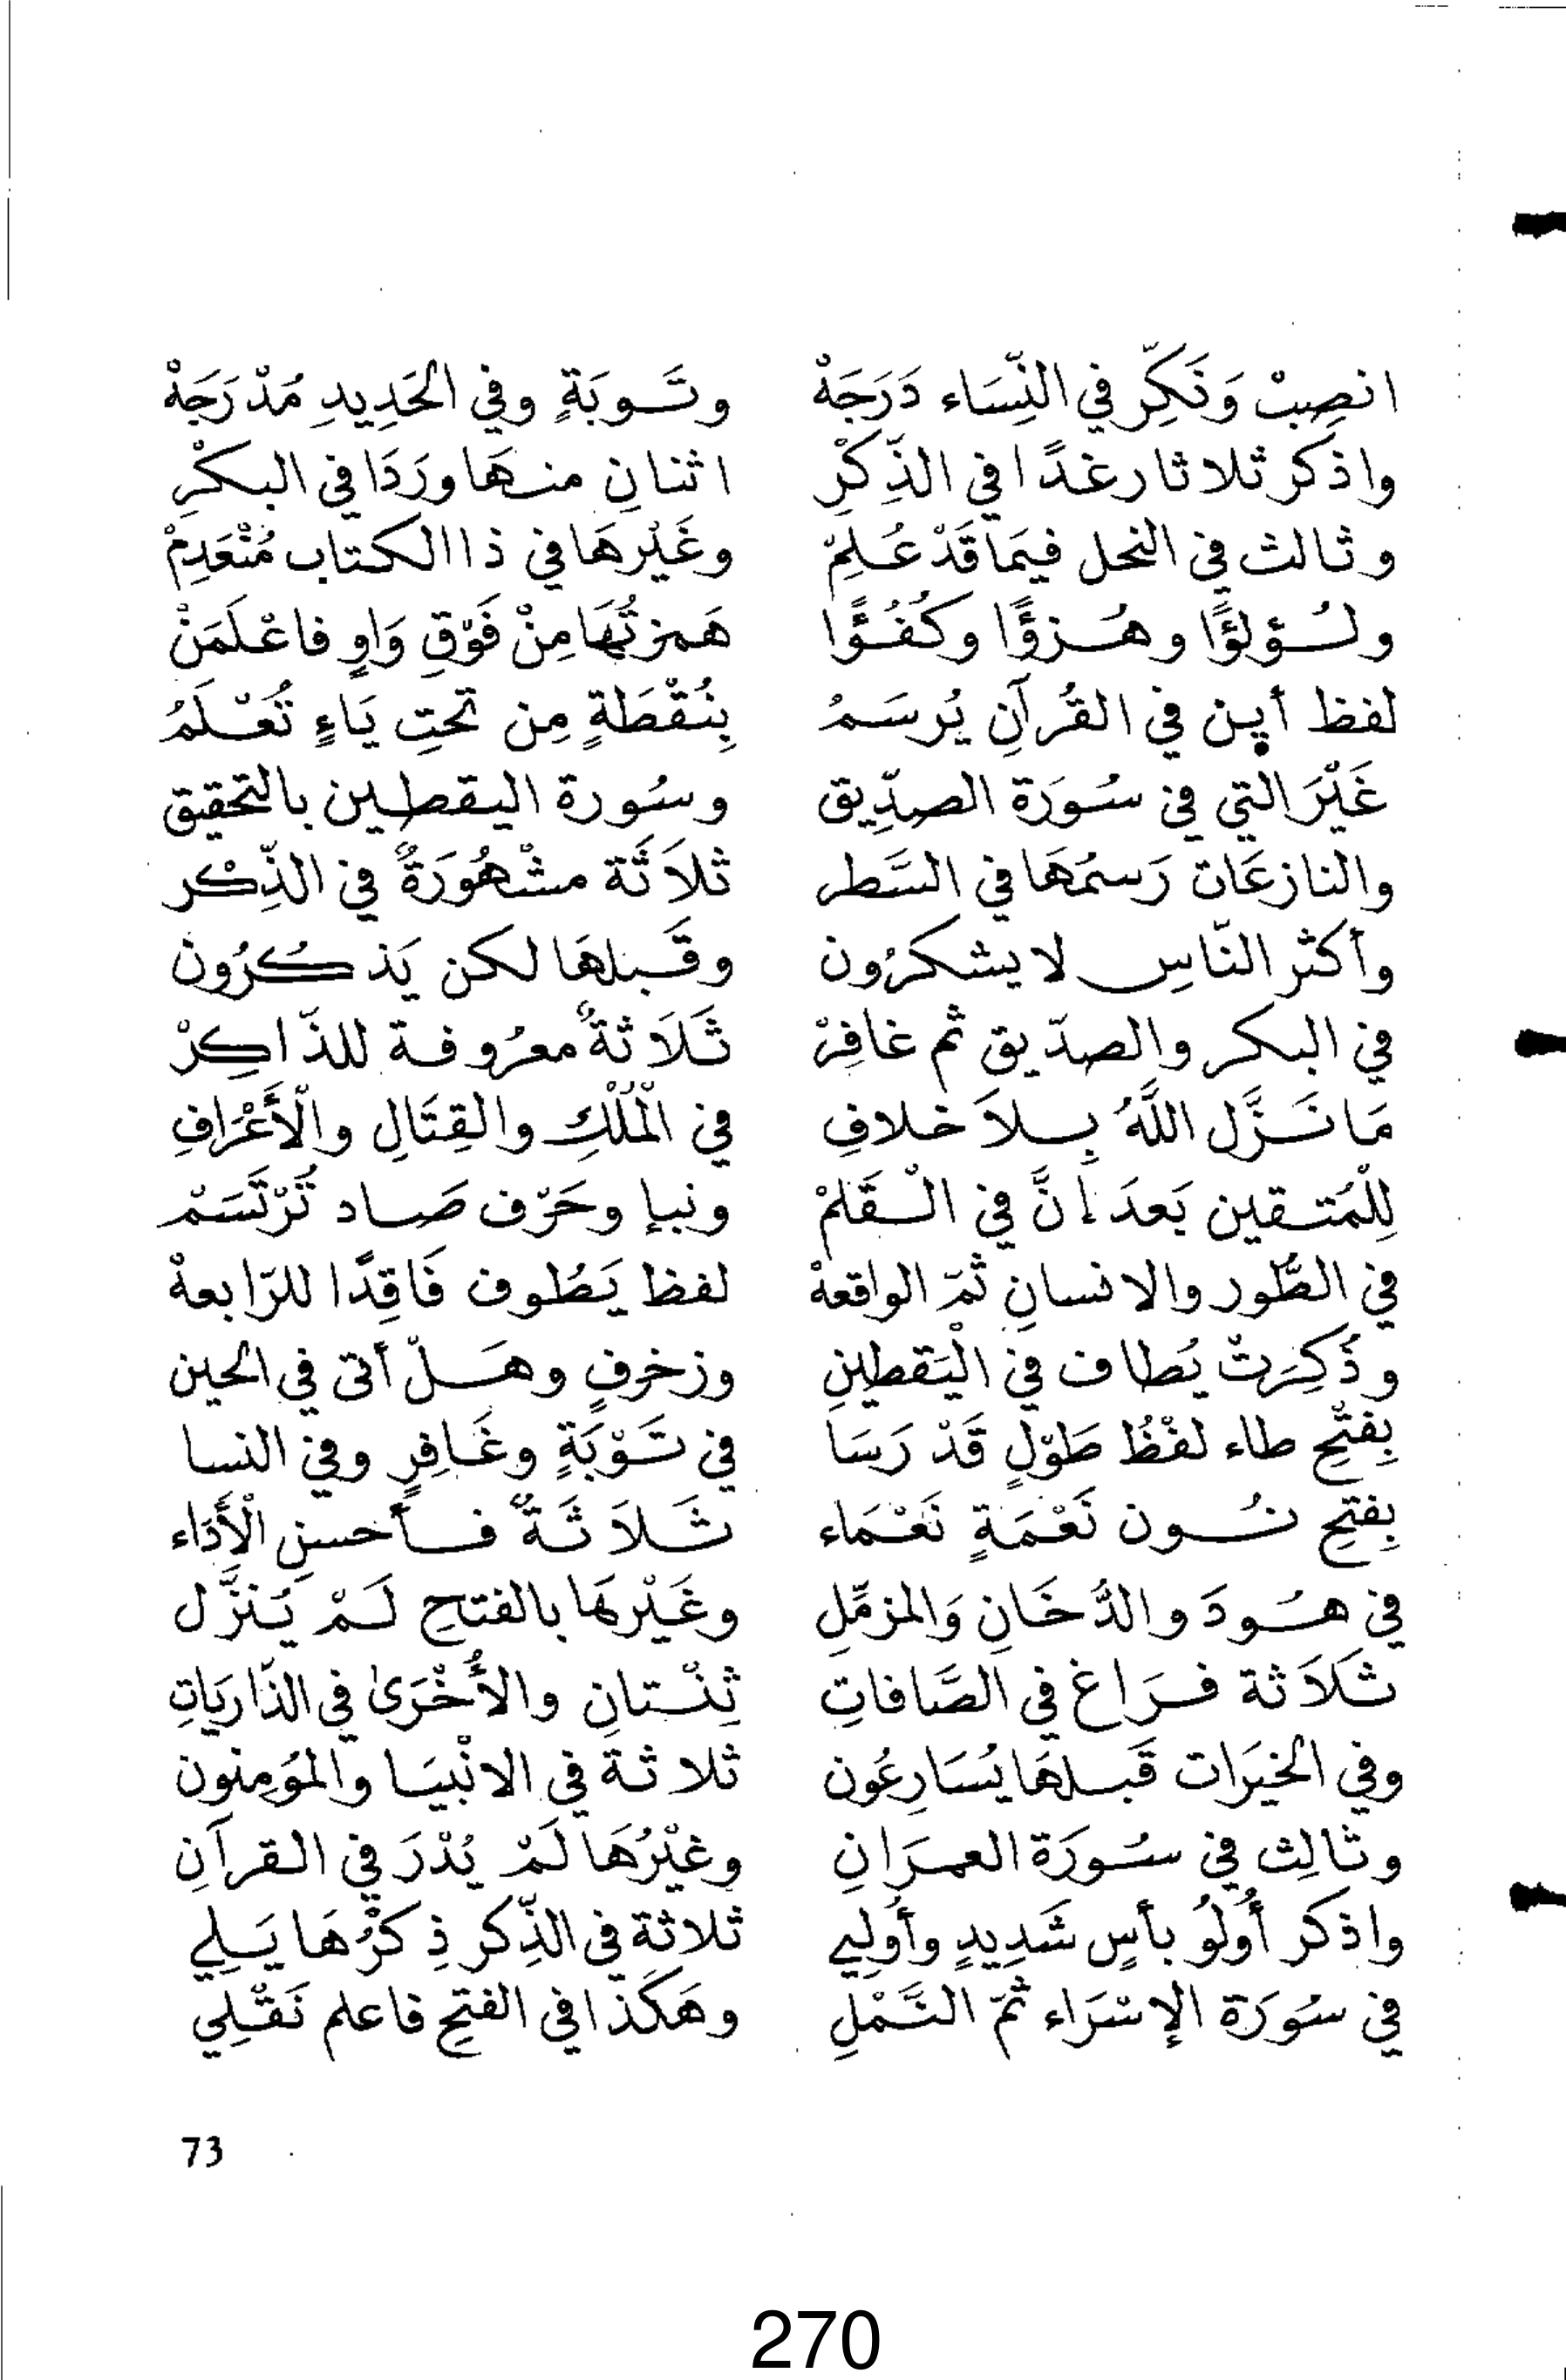 انصِبْ وَنَكِّر في النِّسَاء دَرَجَهْ وتَوبَةٍ وفي الحَدِيدِ مُدْرَجَهْ
واذكر ثلاثا رغدًا في الذِّكْرِ اثنانِ منهَا ورَدَا في البكْرِ
وثالث في النحل فيمَا قَدْ عُلِمْ وغَيْرهَا في ذا الكتاب مُنْعَدِمْ
ولُؤلؤًا وهُزؤًا وكُفُؤًا هَمزتُهَا مِنْ فَوْقِ وَاوٍ فاعْلَمَنْ
لفظ أيِن في القُرآنِ يُرسَمُ بِنُقْطَةٍ مِن تحتِ يَاءٍ تُعْلَمُ
غَيْرَ التي في سُورَة الصدِّيق وسُورة اليقطين بالتحقيق
والنازعَات رَسمُهَا في السَّطر ثلاَثَة مشْهُورَةٌ في الذِّكْر
وأكثر النّاسِ لا يشكرُون وقَبلهَا لكن يَذكرُون
في البكر والصدّيق ثم غافِرْ ثَلَاثةٌ معرُوفة للذّاكِرْ
مَا نَزَّل اللَّهُ بِلاَ خلافِ في الْمُلْكِ والقِتَالِ والْأَعْرَافِ
لِلْمُتقين بَعدَ إنَّ في الْقَلَمْ ونبإ وحَرْف صَاد تُرْتَسَمْ
في الطُّور والانسانِ ثمّ الواقعهْ لفظ يَطُوف فَاقِدًا للرّابعهْ
وذُكِرَتْ يُطاف في الْيَقطينِ وزخرفٍ وهَلْ أتى في الحين
بِفتْحِ طاء لفْظُ طَوْلٍ قَدْ رَسَا في تَوْبَةٍ وغَافِرٍ وفي النسا
بِفتحِ نُون نَعْمَةٍ نَعْمَاء ثَلاَثَةٌ فأحسنِ الْأَدَاء
في هُودَ والدُّخَانِ وَالمزمِّلِ وغَيْرهَا بالفتحِ لَمْ يُنَزَّل
ثَلاَثة فرَاغ في الصَّافاتِ ثِنْتانِ والأُخْرَىٰ في الذّاريَاتِ
وفي الخيرَات قَبلهَا يُسَارِعُون ثلاثة في الانْبيَا والمؤمِنون
وثَالِث في سُورَة العمرَانِ وغيْرُهَا لَمْ يُدْرَ في القرآنِ
واذكر أُولُو بأسٍ شَدِيدٍ وأُولِي ثلاثة في الذِّكر ذِكرُهَا يَلِي
في سُورَة الإسْرَاء ثمّ النَّمْلِ وهَكَذا في الفتحِ فاعلم نَقْلِي
73
270